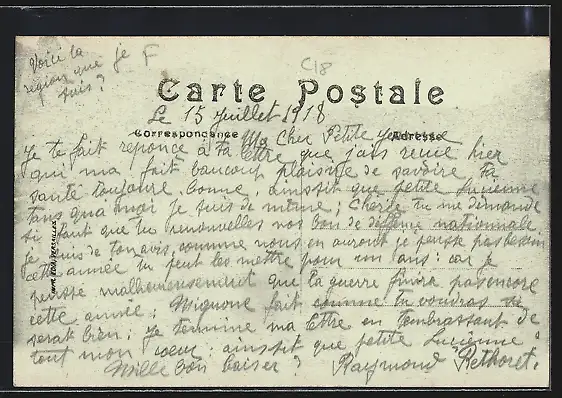 Voici la
région que je F
suis ?
C18
Carte Postale
Le 15 juillet 1918
Correspondance
Adresse
Ma Cher Petite
Je te fait reponce à ta lettre que j'ais reçue hier
qui ma fait baucoup plaisire de savoire ta
santé toujoure bonne, ainssit que petite Lucienne
tans qua moi je suis de même ; Cherie tu me demande
si faut que tu renouvelles nos bon de deffence nationnale,
je suis de ton avis, comme nous en auront je pensse pas bessoin
cette année tu peut les mettre pour un ans : car je
pensse malheureusement que la guerre finira pas encore
cette année ; Mignone fait comme tu voudras se
serat bien ; je termine ma lettre en t'embrassant de
tout mon cœur ainssit que petite Lucienne
Mille bon baiser ? Raymond Rethoret.